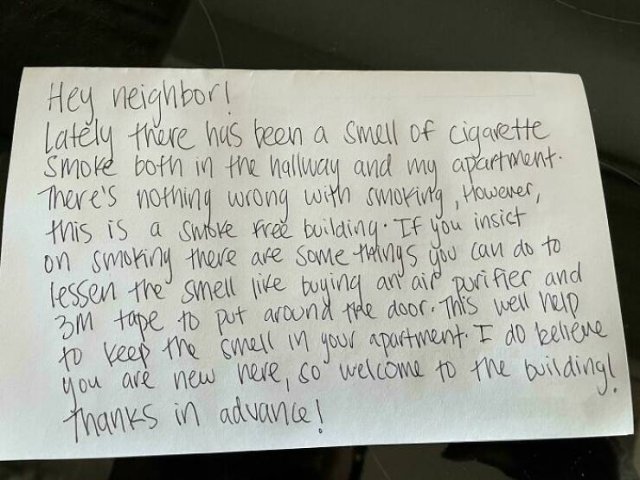 Hey neighbor!
Lately there has been a smell of cigarette
smoke both in the hallway and my apartment.
There's nothing wrong with smoking, However,
this is a smoke free building. If you insict
on smoking there are some things you can do to
lessen the smell like buying an air purifier and
3M tape to put around the door. This well help
to keep the smell in your apartment. I do believe
you are new here, so welcome to the building!
Thanks in advance!